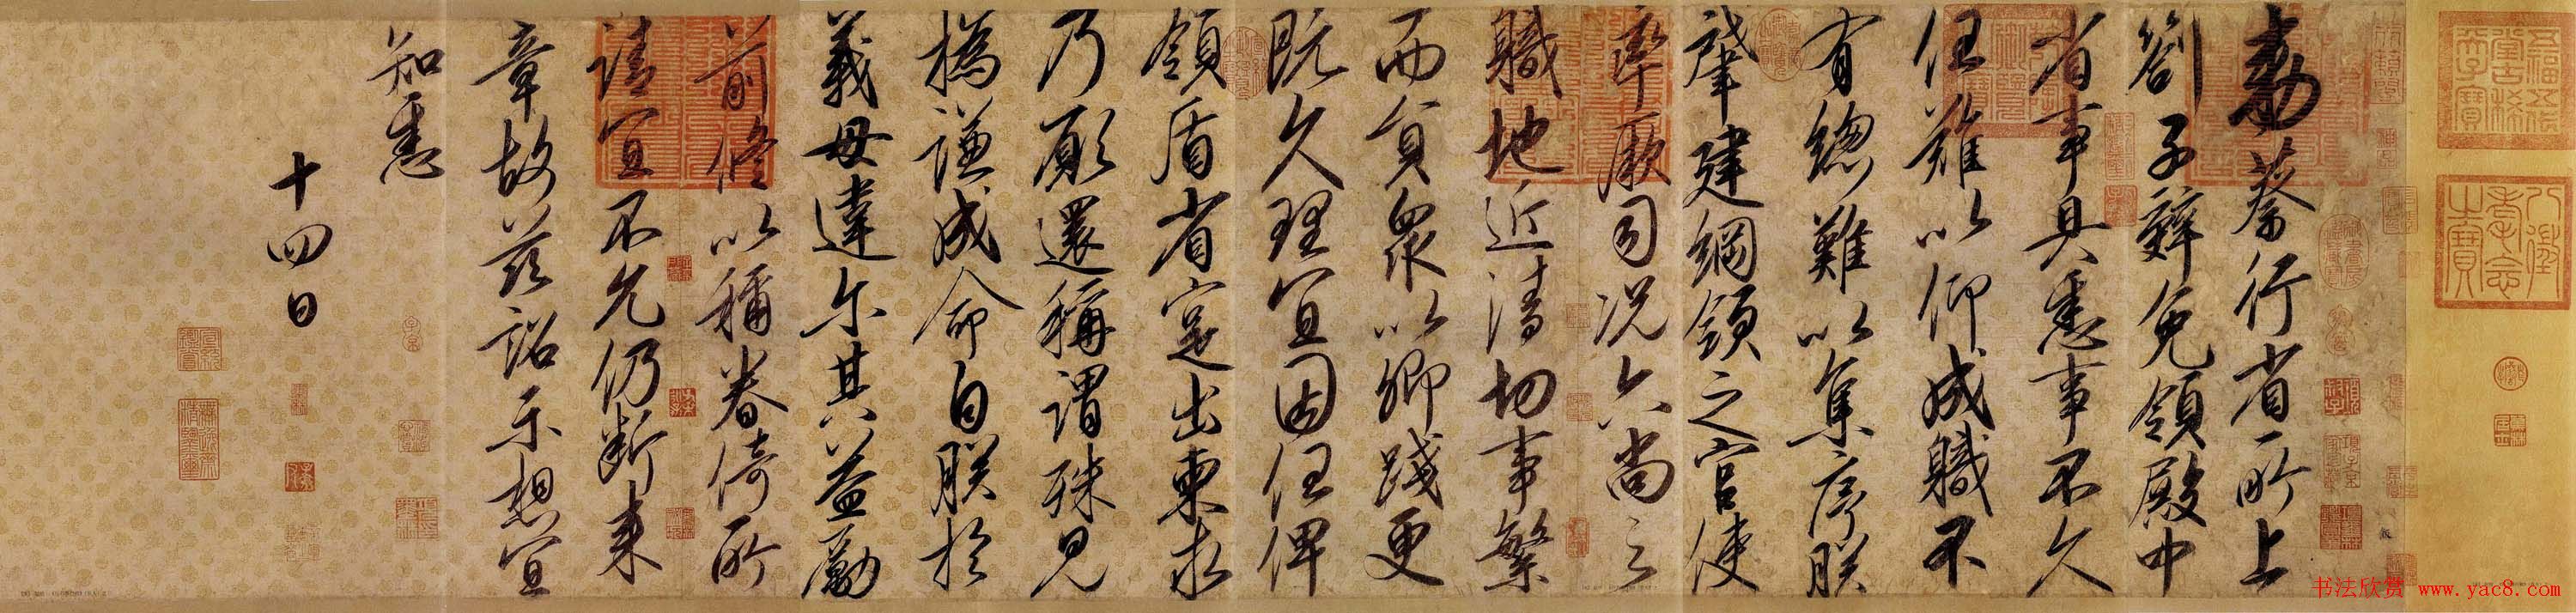 勅蔡行省所上
劄子辭免領殿中
省事具悉事不久
任難以仰成職不
有總難以集序朕
肇建綱領之官使
率厥司況六尚之
職地近清切事繁
而員衆以卿踐更
既久理宜因任俾
領盾省寔出柬求
乃願還稱謂殊見
撝謙成命自朕於
義毋違尔其益勵
前修以稱眷倚所
請宜不允仍斷來
章故茲詔示想宜
知悉
十四日
八徵耄念之寶
书法欣赏 www.yac8.com